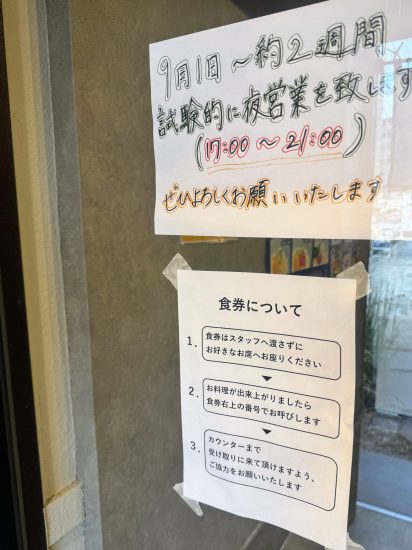 9月1日～約2週間
試験的に夜営業を致します
(17:00～21:00)
ぜひよろしくお願いいたします
食券について
1.
食券はスタッフへ渡さずに
お好きなお席へお座りください
2.
お料理が出来上がりましたら
食券右上の番号でお呼びします
3.
カウンターまで
受け取りに来て頂けますよう、
ご協力をお願いいたします